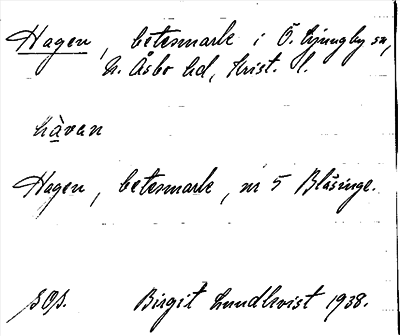 Hagen, betesmark i Ö. Ljungby sn,
N. Åsbo hd, Krist. l.
hàvan
Hagen, betesmark, nr 5 Blåsinge.
Birgit Lundkvist 1938.